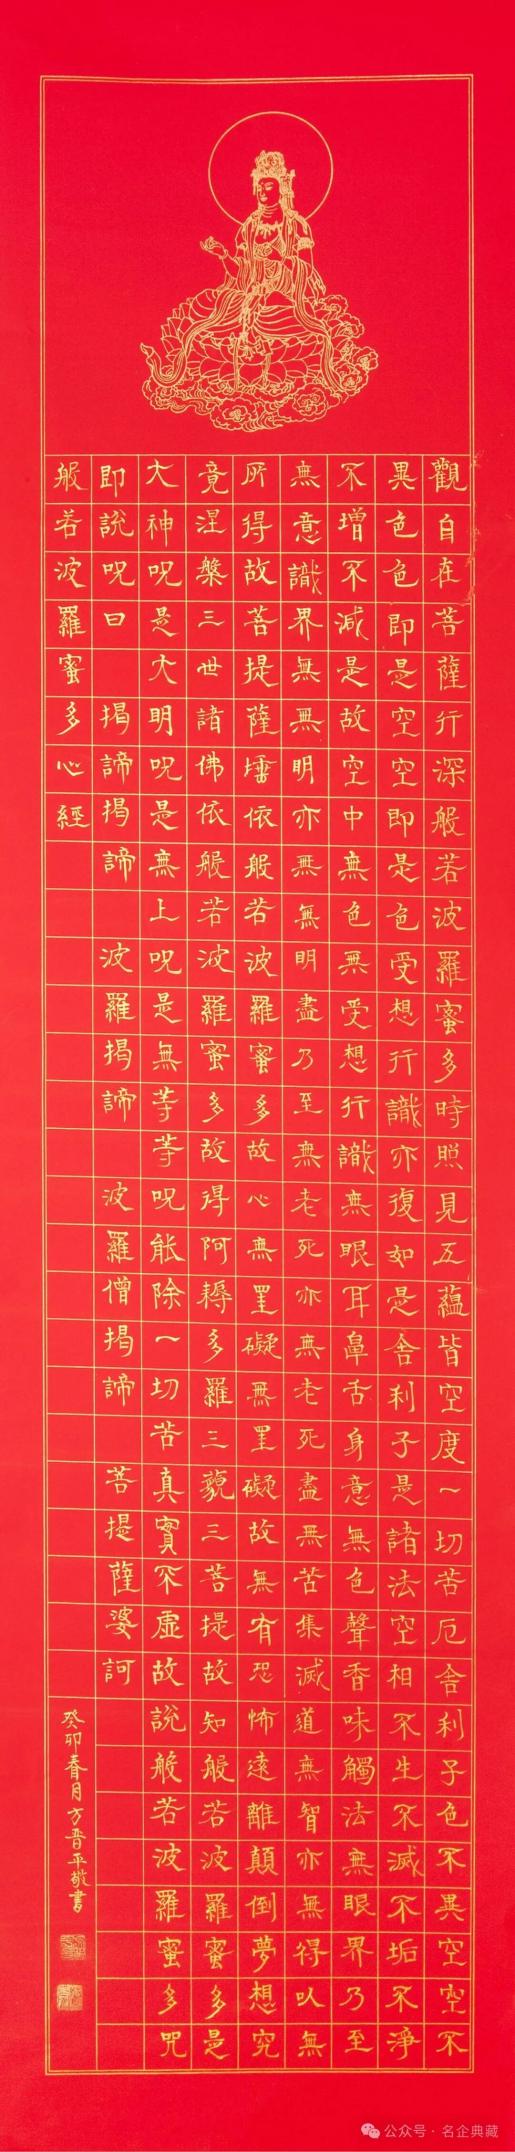 觀自在菩薩行深般若波羅蜜多時照見五蘊皆空度一切苦厄舍利子色不異空空不
異色色即是空空即是色受想行識亦復如是舍利子是諸法空相不生不滅不垢不淨
不增不減是故空中無色無受想行識無眼耳鼻舌身意無色聲香味觸法無眼界乃至
無意識界無無明亦無無明盡乃至無老死亦無老死盡無苦集滅道無智亦無得以無
所得故菩提薩埵依般若波羅蜜多故心無罣礙無罣礙故無有恐怖遠離顛倒夢想究
竟涅槃三世諸佛依般若波羅蜜多故得阿耨多羅三藐三菩提故知般若波羅蜜多是
大神呪是大明呪是無上呪是無等等呪能除一切苦真實不虛故說般若波羅蜜多咒
即說呪曰 揭諦揭諦 波羅揭諦 波羅僧揭諦 菩提薩婆訶
般若波羅蜜多心經
癸卯春月方晋平敬書
公众号·名企典藏